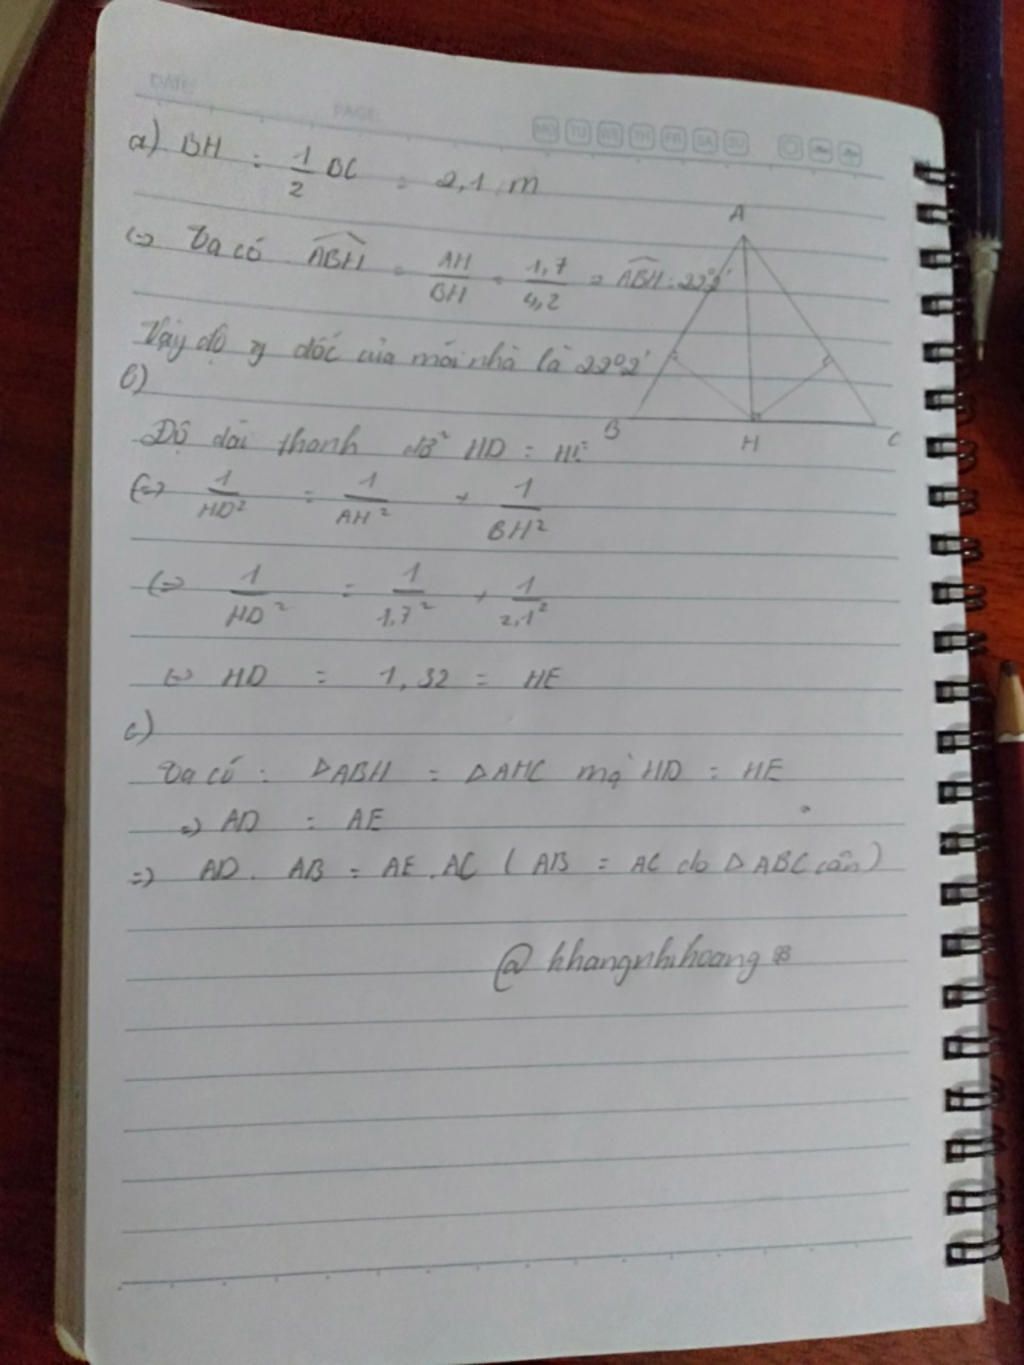 DATE:
PAGE:
MO TU WE TH FR SA SU
a) BH = 1/2 BC = 2,1 m
A
(=) Ta có ABH = AH/BH = 1,7/4,2 => ABH = 22°2'
Vậy độ dốc của mái nhà là 22°2'
B H C
b)
Độ dài thanh đỡ HD = HE
(=) 1/HD² = 1/AH² + 1/BH²
(=) 1/HD² = 1/1,7² + 1/2,1²
(=) HD = 1,32 = HE
c)
Ta có : ΔABH = ΔAHC mà HD = HE
=) AD = AE
=) AD . AB = AE . AC ( AB = AC do ΔABC cân )
@ khangnhihoang